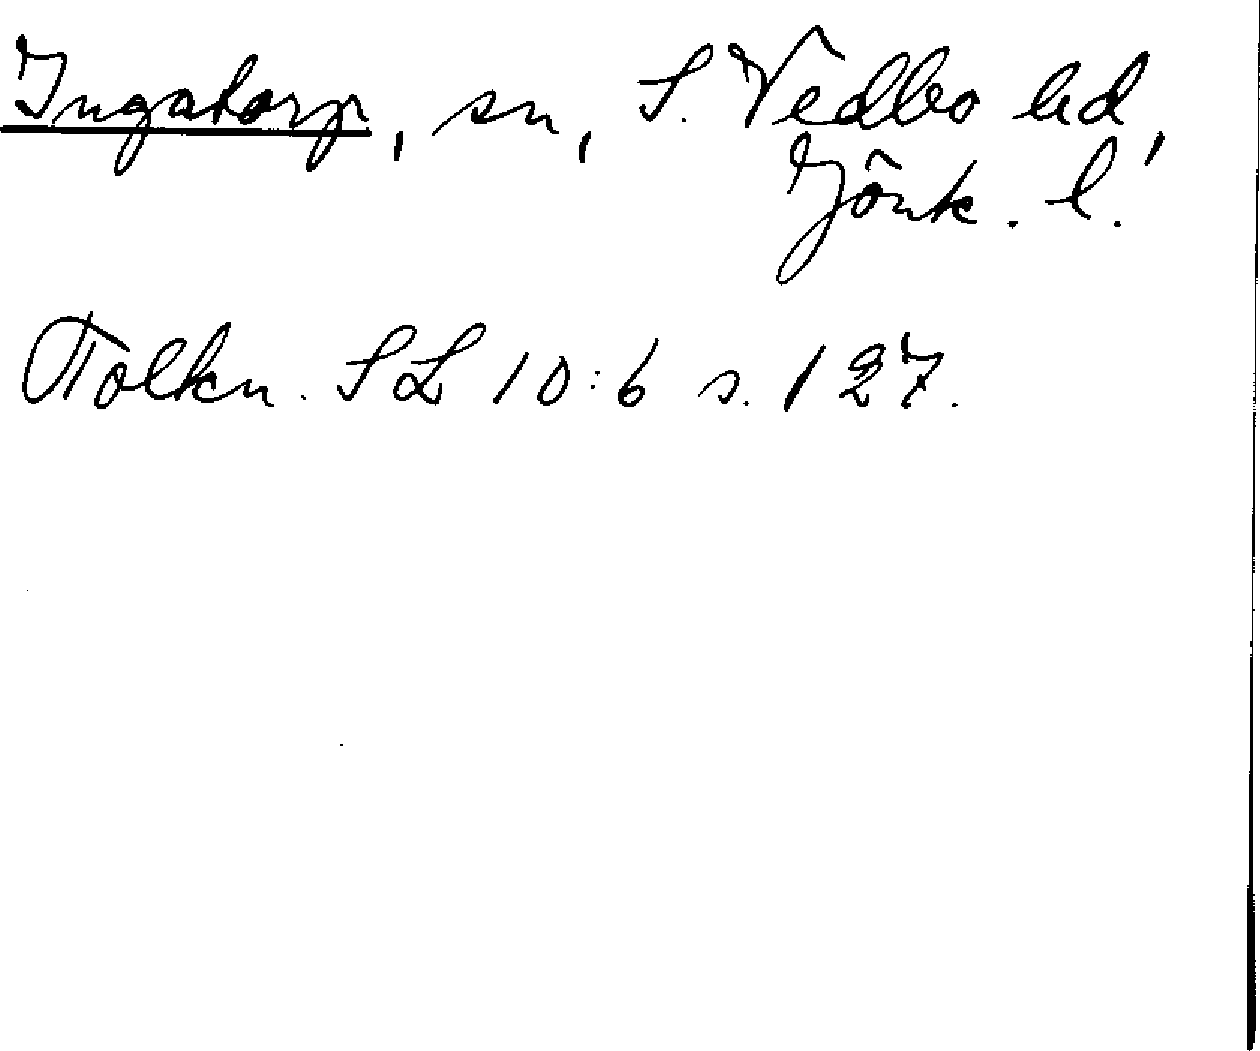 Ingatorp, sn, S. Vedbo hd,
Jönk. l.
Tolkn. SL 10:6 s. 127.